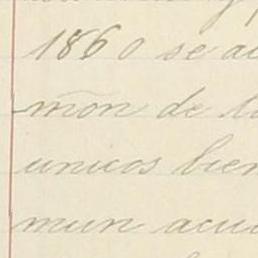 1860 se a
món de l
unicos bien
mun acu